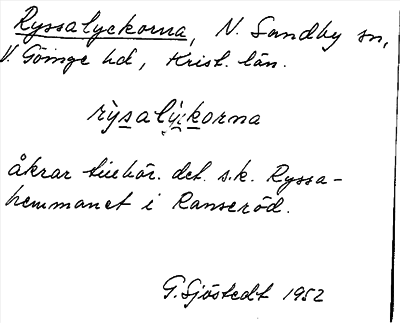 Ryssalyckorna, N. Sandby sn,
V. Göinge hd, Krist. län.
rỳsalỳkorna
åkrar tillhör. det s.k. Ryssa-
hemmanet i Ranseröd.
G. Sjöstedt 1952